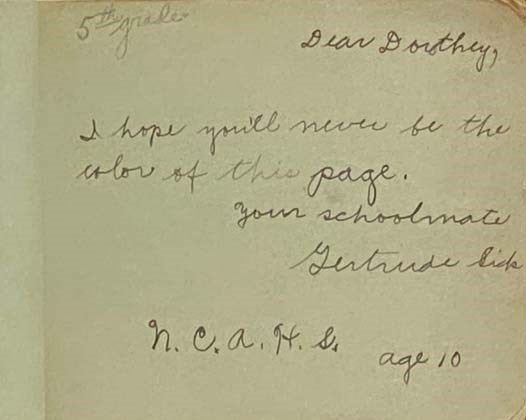 5th grade
Dear Dorthey,
I hope you'll never be the
color of this page.
Your schoolmate
Gertrude Sick
N. C. A. H. S.
age 10